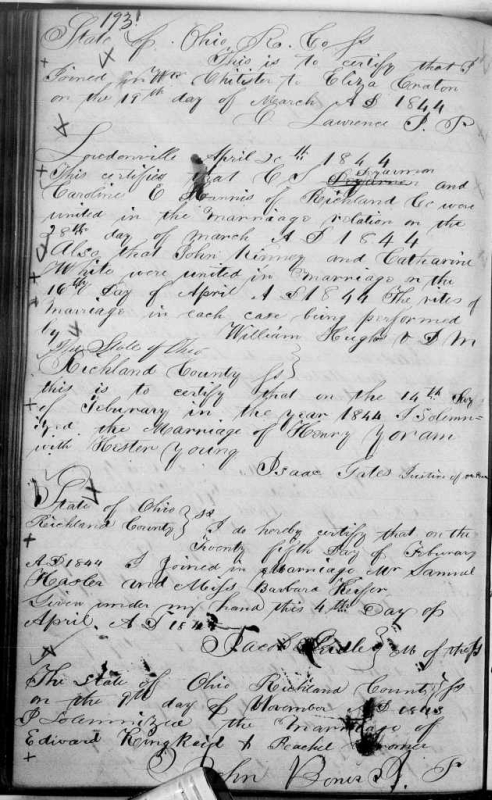 193
State of Ohio R. Co ss
This is to certify that I
Joined Wm Chilister to Eliza Craton
on the 19th day of March A D 1844
C Lawrence J. P
Loudonville April 20th 1844
This certifies that C S Sparman and
Caroline E Harris of Richland Co were
united in the marriage relation on the
28th day of march A D 1844
Also that John Kinney and Catharine
White were united in marriage on the
16th Day of April A D 1844 The rites of
marriage in each case being performed
by William Hughs V D M
The State of Ohio
Richland County ss
this is to certify that on the 14th Day
of Feburary in the year 1844 I Solemn-
ized the Marriage of Henry Yoram
with Hester Young
Isaac Gates Justice of
State of Ohio
Richland County } ss I do hereby certify that on the
Twenty fifth Day of Feburary
A D 1844 I Joined in Marriage Mr Samuel
Hasler and Miss Barbard Keyser
Given under my hand this 4th Day of
April A D 184
Jacob } M of the
The State of Ohio Richland County ss
on the 9th day of November A D 1843
I Solemnized the Marriage of
Edward Kingkaid & Rachel
John Boner J. P